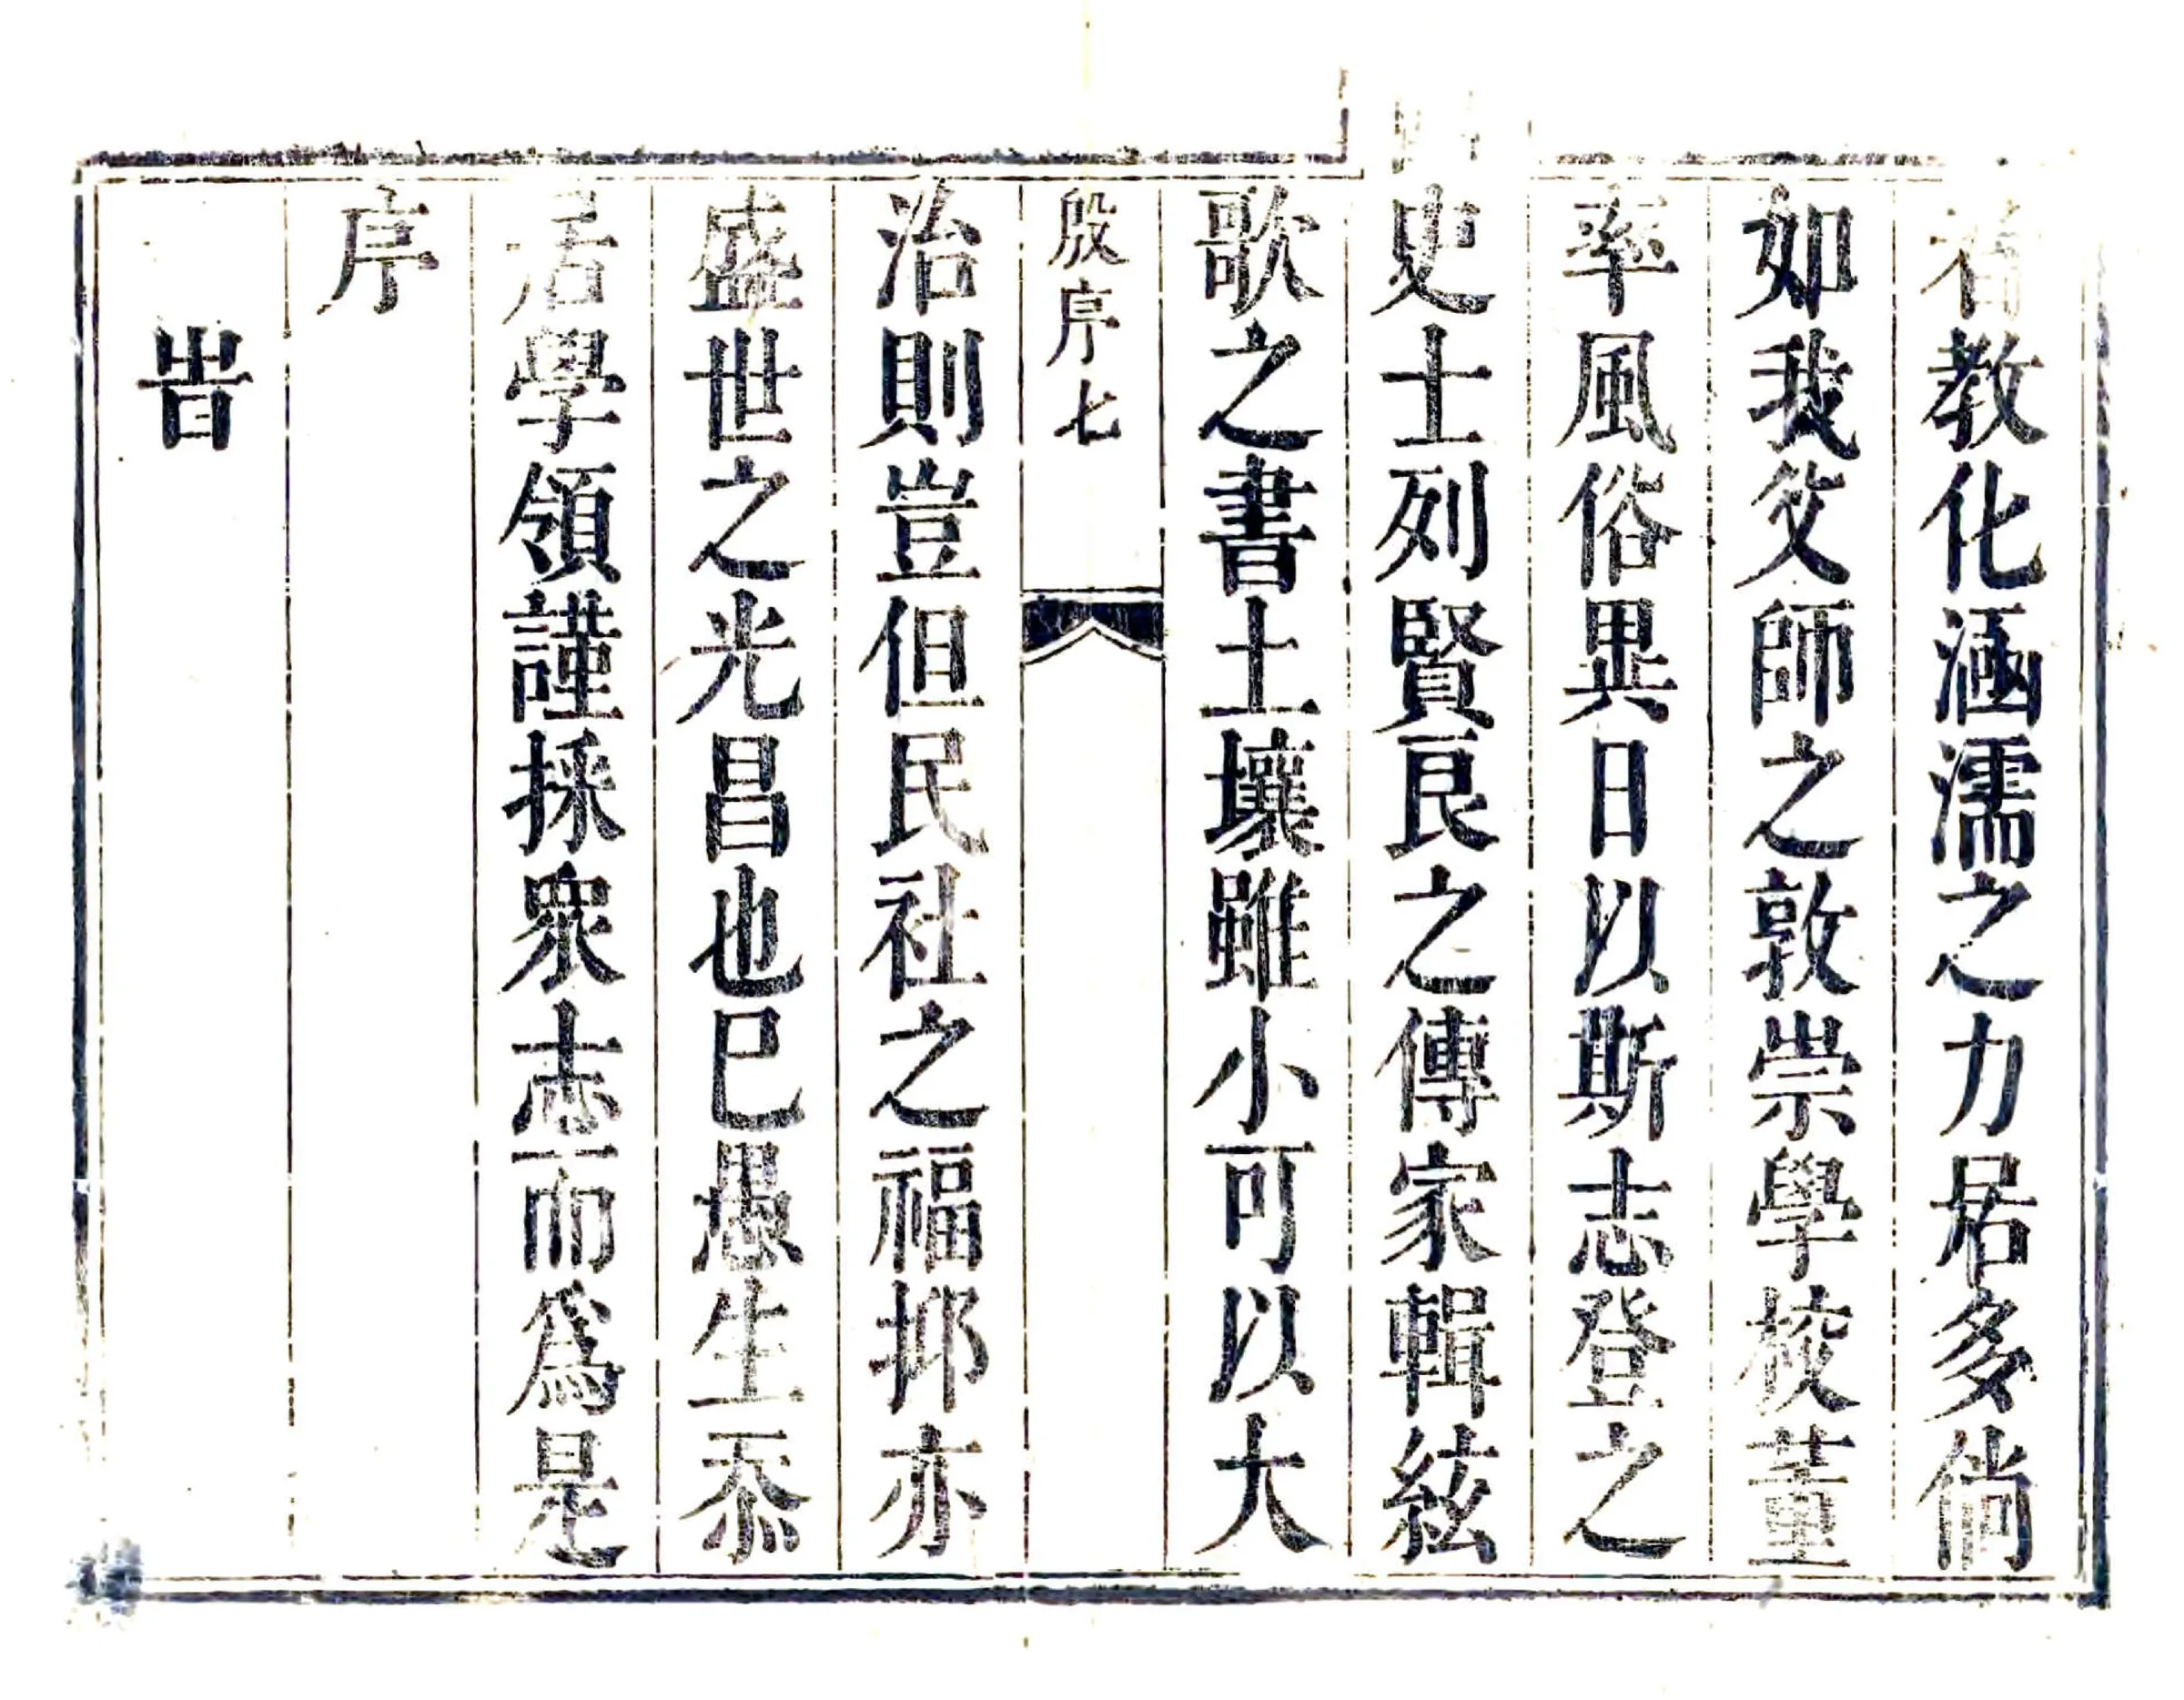 者教化涵濡之力居多倘
如我父師之敦崇學校董
率風俗異日以斯志登之
史士列賢良之傳家輯絃
歌之書土壤雖小可以大
殷序七
治則豈但民社之福抑亦
盛世之光昌也巳愚生忝
居學領謹採眾志而為是
序
旹